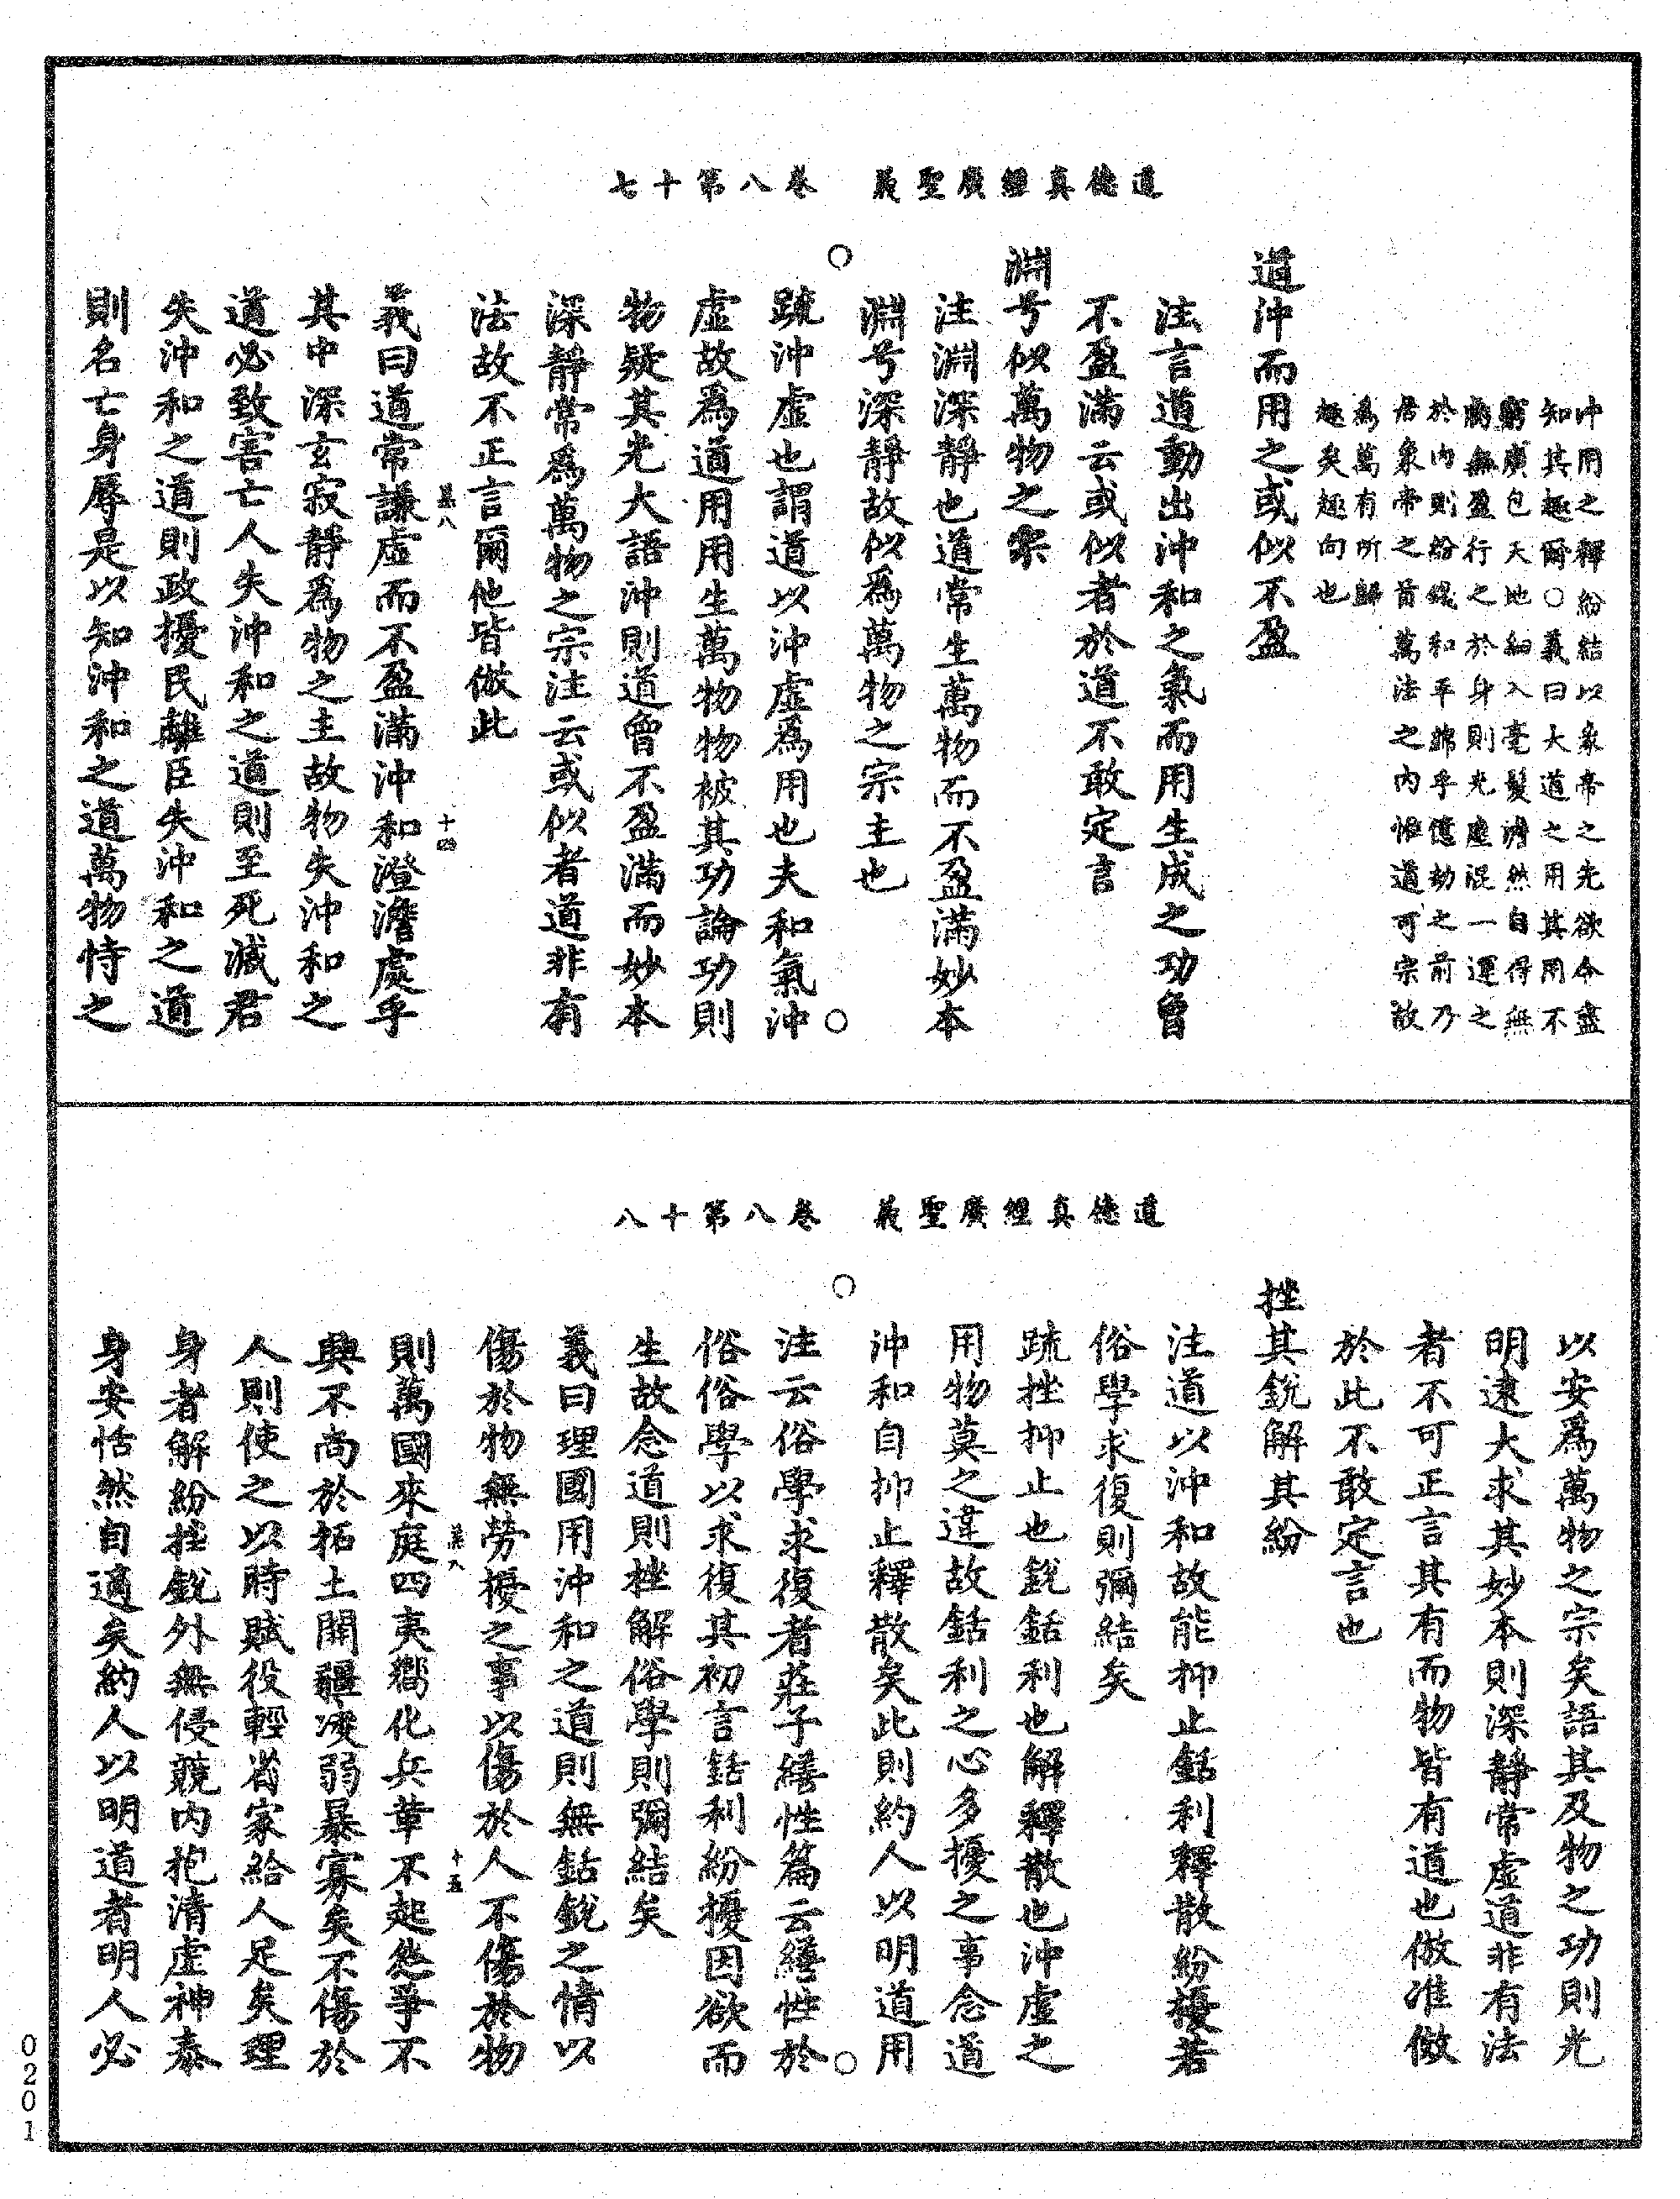 道德真經廣聖義　卷八第十七
沖用之釋紛結以象帝之先欲令盡
知其趣爾○義曰大道之用其用不
窮廣包天地細入毫髮湛然自得無
虧無盈行之於身則光塵混一運之
於內則紛銳和平綿乎億劫之前乃
居象帝之首萬法之內惟道可宗故
為萬有所歸
趣矣趣向也
道沖而用之或似不盈
注言道動出沖和之氣而用生成之功曾
不盈滿云或似者於道不敢定言
淵兮似萬物之宗
注淵深靜也道常生萬物而不盈滿妙本
淵兮深靜故似爲萬物之宗主也
疏沖虛也謂道以沖虛爲用也夫和氣沖
虛故爲道用用生萬物物被其功論功則
物疑其光大語沖則道曾不盈滿而妙本
深靜常爲萬物之宗注云或似者道非有
法故不正言爾他皆倣此
義曰道常謙虛而不盈滿沖和澄澹處乎
其中深玄寂靜爲物之主故物失沖和之
道必致害亡人失沖和之道則至死滅君
失沖和之道則政擾民離臣失沖和之道
則名亡身辱是以知沖和之道萬物恃之
道德真經廣聖義　卷八第十八
以安爲萬物之宗矣語其及物之功則光
明遠大求其妙本則深靜常虛道非有法
者不可正言其有而物皆有道也倣准倣
於此不敢定言也
挫其銳解其紛
注道以沖和故能抑止銛利釋散紛擾若
俗學求復則彌結矣
疏挫抑止也銳銛利也解釋散也沖虛之
用物莫之違故銛利之心多擾之事念道
沖和自抑止釋散矣此則約人以明道用
注云俗學求復者莊子繕性篇云繕性於
俗俗學以求復其初言銛利紛擾因欲而
生故念道則挫解俗學則彌結矣
義曰理國用沖和之道則無銛銳之情以
傷於物無勞擾之事以傷於人不傷於物
則萬國來庭四夷嚮化兵革不起怨爭不
興不尚於拓土開疆凌弱暴寡矣不傷於
人則使之以時賦役輕省家給人足矣理
身者解紛挫銳外無侵競內抱清虛神泰
身安恬然自適矣約人以明道者明人必
十四
十五
0201